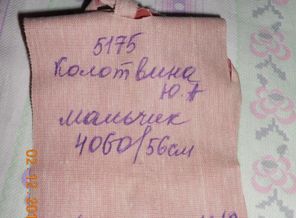 5175
Колотвина
Ю.А
мальчик
4060/56см